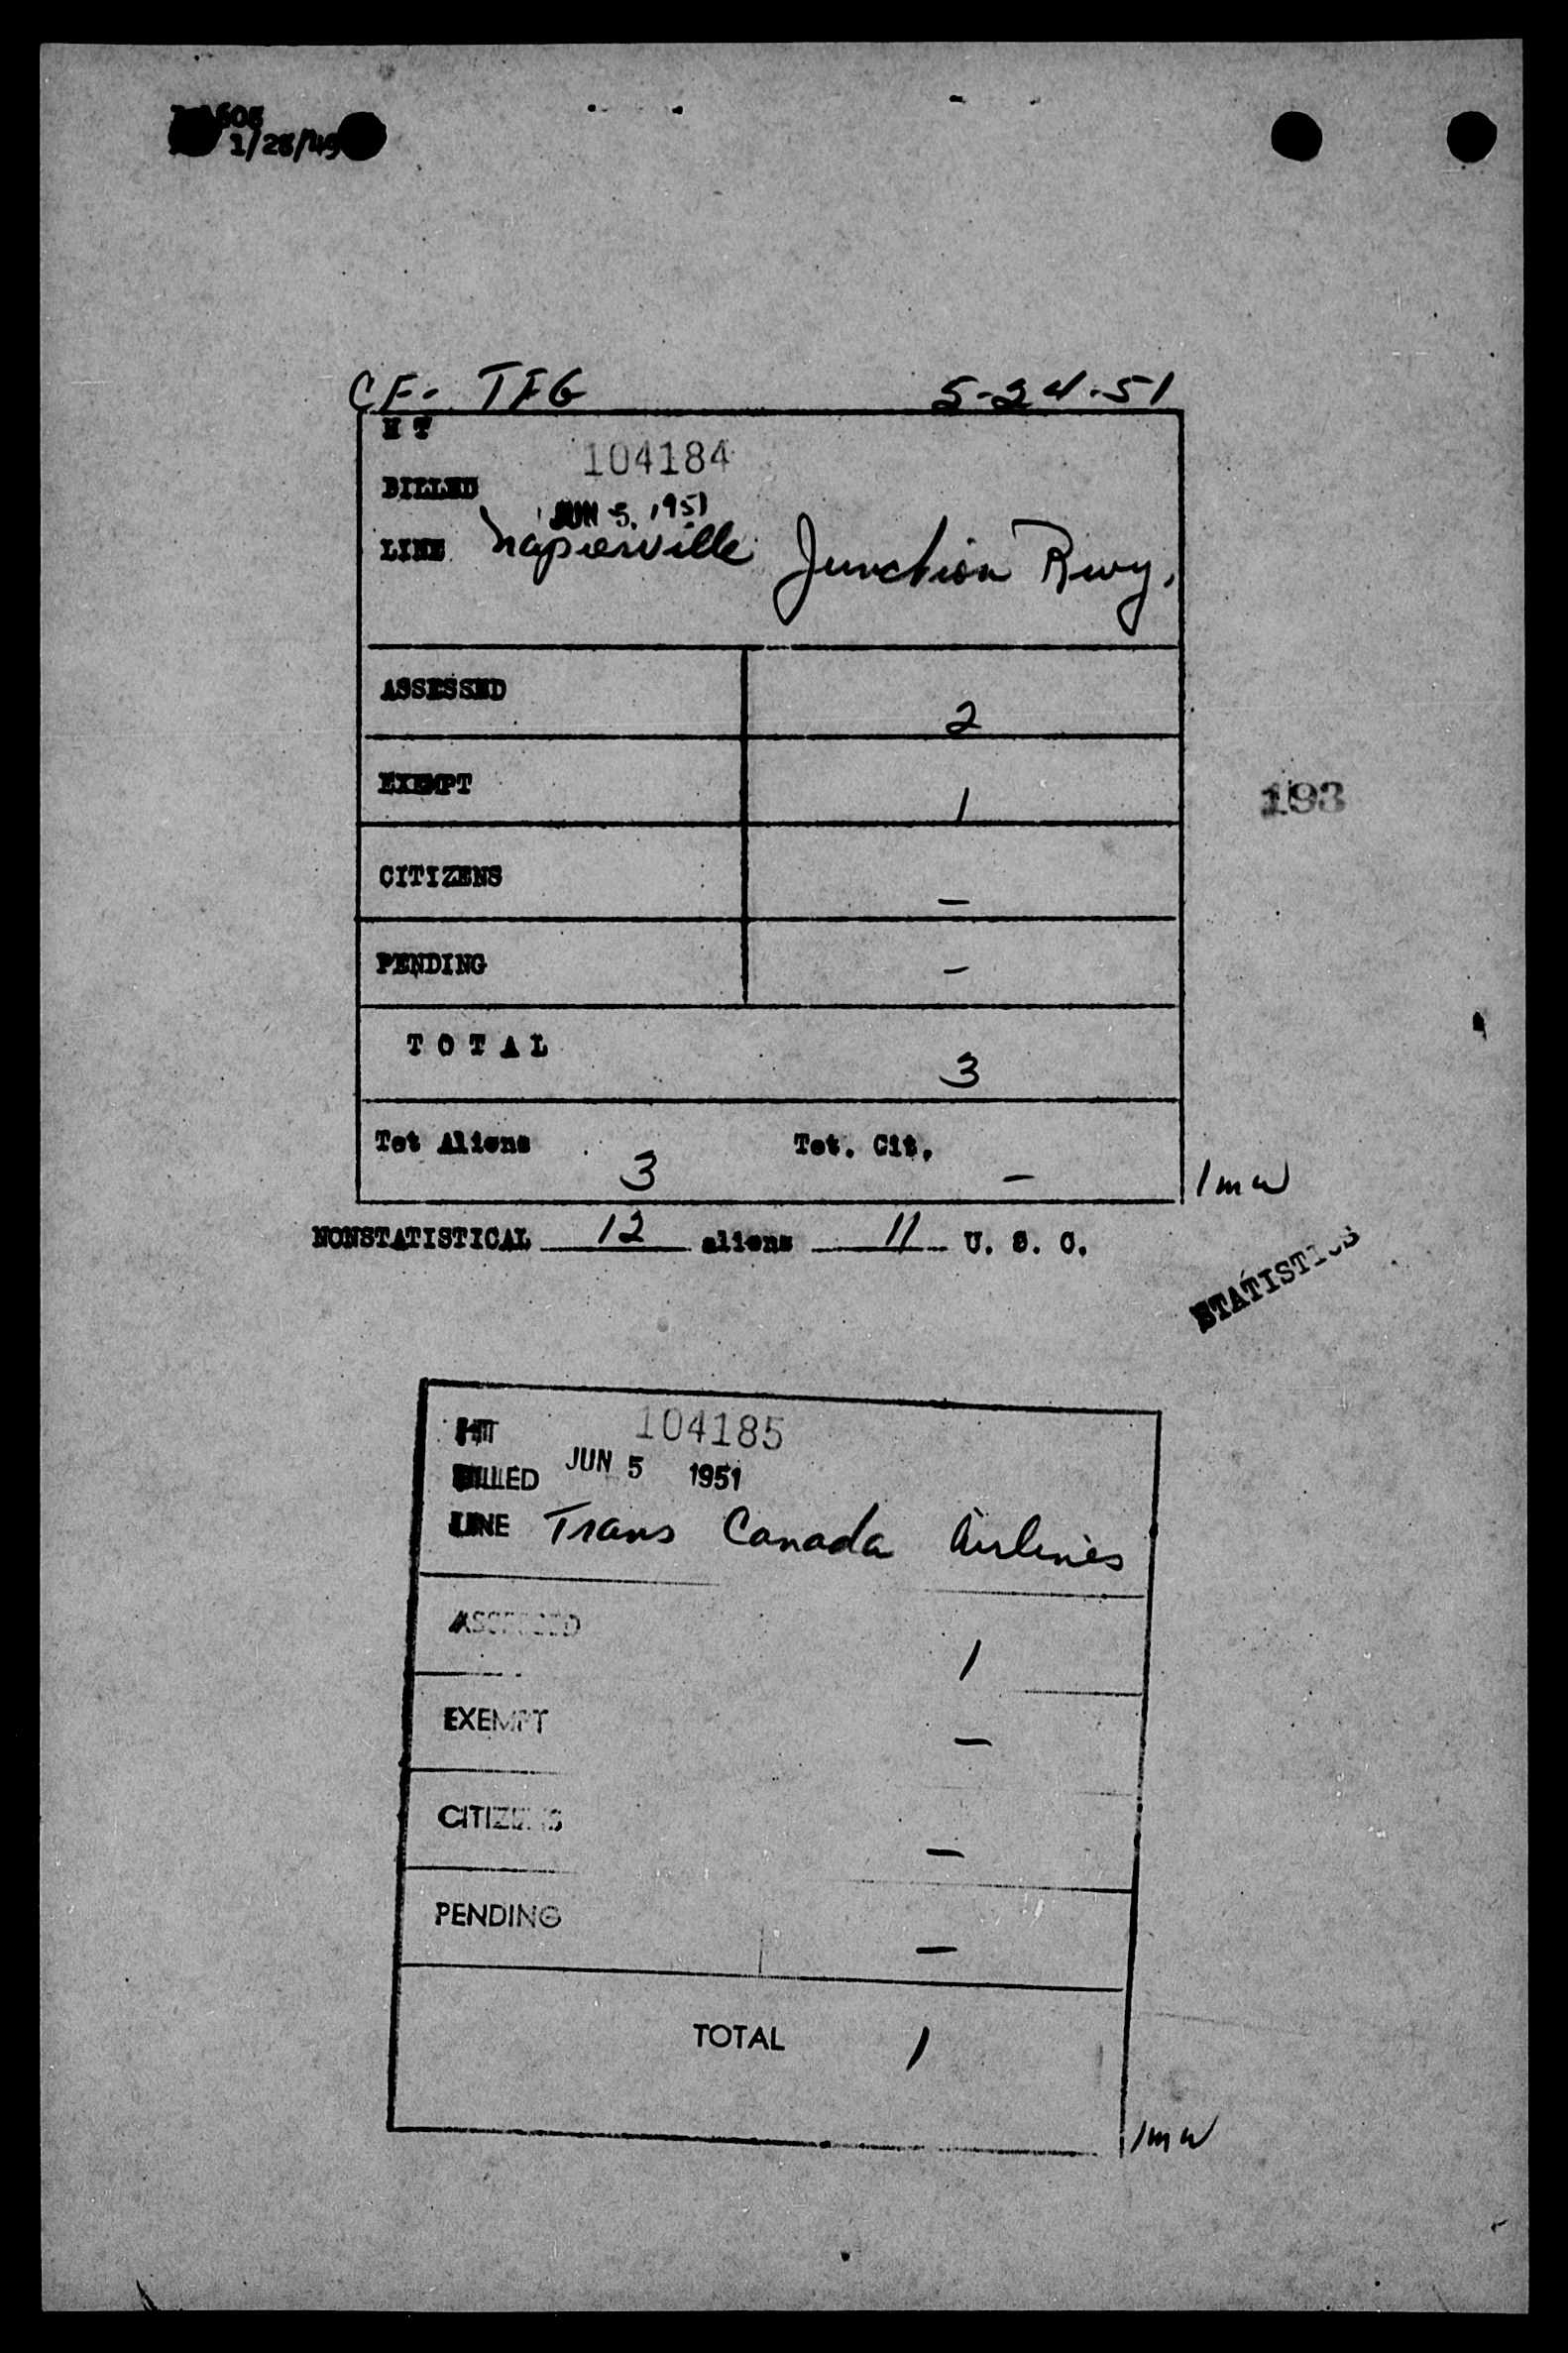 1/28/49
CF- TFG 5-24-51
H T 104184
BILLED JUN 5, 1951
LINE Napierville Junction Rwy.
ASSESSED 2
EXEMPT 1
193
CITIZENS -
PENDING -
TOTAL 3
Tot Aliens 3 Tot. Cit. -
NONSTATISTICAL 12 aliens 11 U. S. C.
STATISTICS
HT 104185
BILLED JUN 5 1951
LINE Trans Canada Airlines
ASSESSED 1
EXEMPT -
CITIZENS -
PENDING -
TOTAL 1